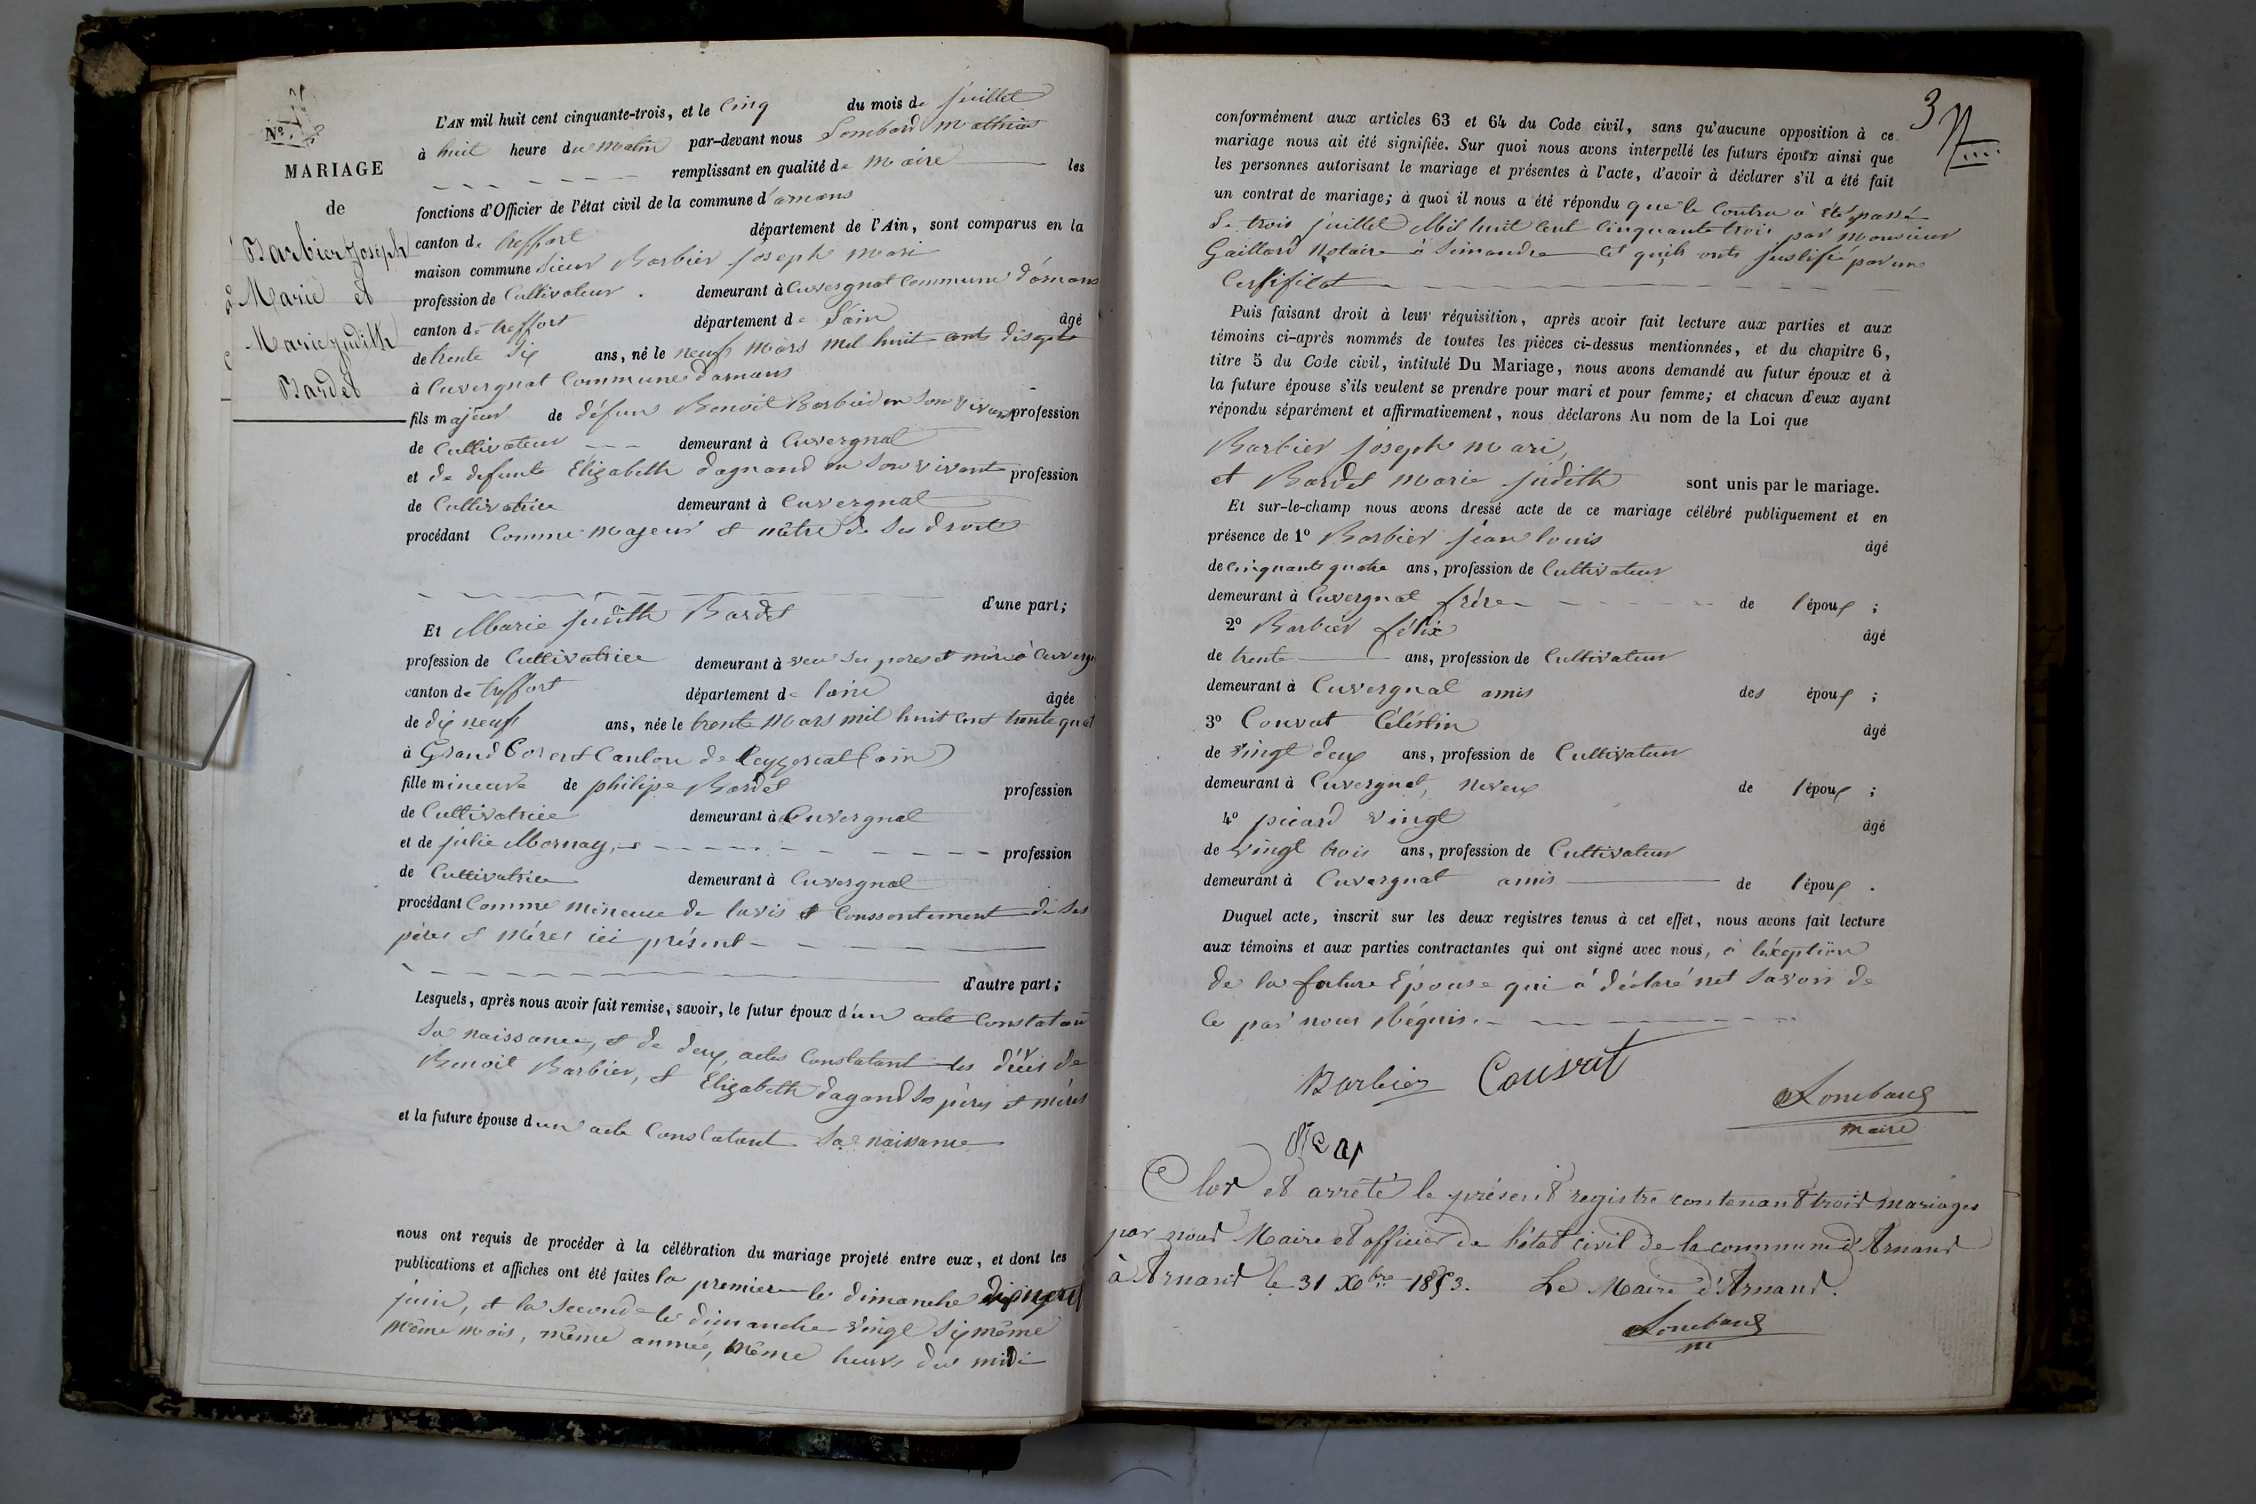 Nº 3
MARIAGE
de
Barbier Joseph
Marie et
Marie Judith
Bardet
L'AN mil huit cent cinquante-trois, et le Cinq du mois de juillet
à huit heure du matin par-devant nous Lombard Mathieu
remplissant en qualité de Maire les
fonctions d'Officier de l'état civil de la commune d'arnans
canton de treffort département de l'Ain, sont comparus en la
maison commune Sieur Barbier Joseph Mari
profession de Cultivateur. demeurant à Cuvergnat Commune d'arnans
canton de treffort département de l'ain âgé
de trente six ans, né le neuf Mars mil huit cents disept
à Cuvergnat Commune d'arnans
fils majeur de défun Benoit Barbier en Son vivan profession
de Cultivateur demeurant à Cuvergnat
et de defunte Elizabeth dagnand en Son vivant profession
de Cultivatrice demeurant à Cuvergnat
procédant Comme majeur et mètre de Ses droits
d'une part;
Et Marie Judith Bardet
profession de Cultivatrice demeurant à ses peres et mère à Cuvergn
canton de treffort département de l'ain âgée
de dix neuf ans, née le trente Mars mil huit cent trente quat
à Grand Corent Canton de Ceyzeriat (ain)
fille mineure de philipe Bardet profession
de Cultivatrice demeurant à Cuvergnat
et de julie Mornay, profession
de Cultivatrice demeurant à Cuvergnat
procédant Comme mineure de lavis et Conssentement de Ses
pères et mères ici présent
d'autre part;
Lesquels, après nous avoir fait remise, savoir, le futur époux d'un acte Constatant
Sa naissance, et de deux actes Constatant les décés de
Benoit Barbier, et Elizabeth dagand Ses pères et mères
et la future épouse d'un acte Constatant Sa naissance
nous ont requis de procéder à la célébration du mariage projeté entre eux, et dont les
publications et affiches ont été faites la premier le dimanche dix neuf
juin, et la Seconde le dimanche vingt Six même
même mois, même année, même heure du midi
3
conformément aux articles 63 et 64 du Code civil, sans qu'aucune opposition à ce
mariage nous ait été signifiée. Sur quoi nous avons interpellé les futurs époux ainsi que
les personnes autorisant le mariage et présentes à l'acte, d'avoir à déclarer s'il a été fait
un contrat de mariage; à quoi il nous a été répondu que le Contra à été passé
Le trois juillet Mil huit Cent Cinquante trois par monsieur
Gaillard Notaire à Simandre et quils onts justifié par un
Certifilat
Puis faisant droit à leur réquisition, après avoir fait lecture aux parties et aux
témoins ci-après nommés de toutes les pièces ci-dessus mentionnées, et du chapitre 6,
titre 5 du Code civil, intitulé Du Mariage, nous avons demandé au futur époux et à
la future épouse s'ils veulent se prendre pour mari et pour femme; et chacun d'eux ayant
répondu séparément et affirmativement, nous déclarons Au nom de la Loi que
Barbier joseph mari,
et Bardet Marie judith sont unis par le mariage.
Et sur-le-champ nous avons dressé acte de ce mariage célébré publiquement et en
présence de 1º Barbier jéan louis âgé
de cinquante quatre ans, profession de Cultivateur
demeurant à Cuvergnat frére de l'époux ;
2º Barbier félix âgé
de trente ans, profession de Cultivateur
demeurant à Cuvergnat amis des époux ;
3º Couvat Céléstin âgé
de vingt deux ans, profession de Cultivateur
demeurant à Cuvergnat, neveux de l'époux ;
4º picard vingt âgé
de vingt trois ans, profession de Cultivateur
demeurant à Cuvergnat amis de l'époux.
Duquel acte, inscrit sur les deux registres tenus à cet effet, nous avons fait lecture
aux témoins et aux parties contractantes qui ont signé avec nous, à léxception
de la future Epouse qui à déclaré net Savoir de
Ce par nous réquis.
Barbier Couvat
Lombard
maire
Clos et arrêté le présent registre contenant trois mariages
par nous Maire et officier de l'état civil de la commune d'Arnans
à Arnans le 31 Xbre 1853. Le Maire d'Arnans.
Lombard
m